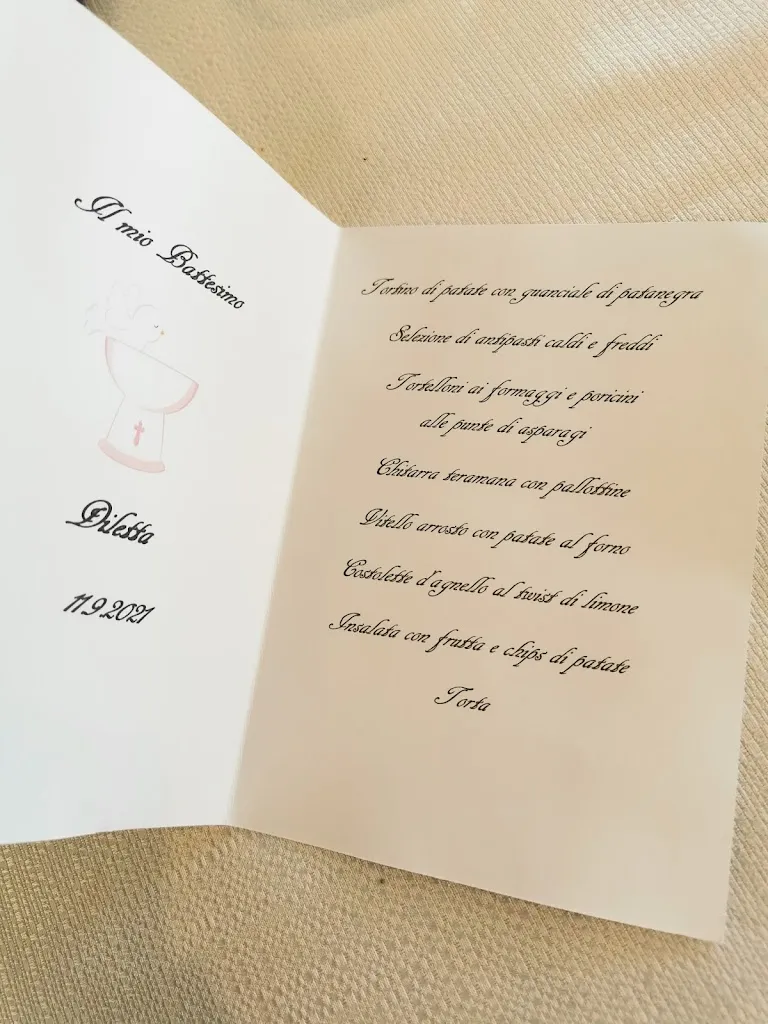 Il mio Battesimo
Diletta
11.9.2021
Tortino di patate con guanciale di patanegra
Selezione di antipasti caldi e freddi
Tortelloni ai formaggi e poricini
alle punte di asparagi
Chitarra teramana con pallottine
Vitello arrosto con patate al forno
Costolette d'agnello al twist di limone
Insalata con frutta e chips di patate
Torta